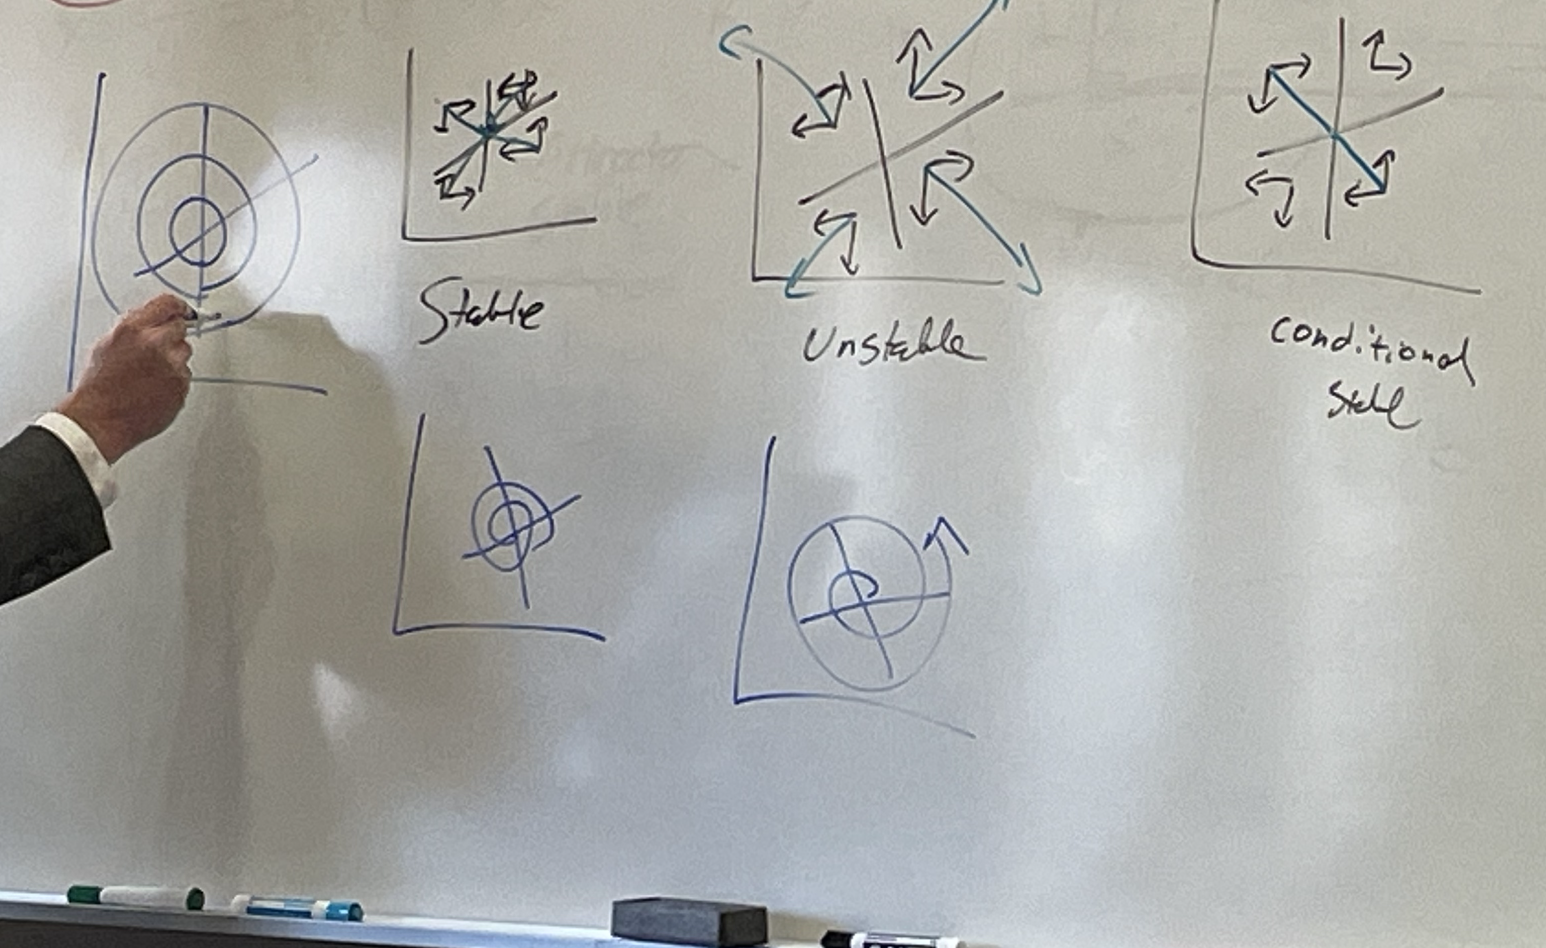 Stable
Unstable
conditional
Stabl